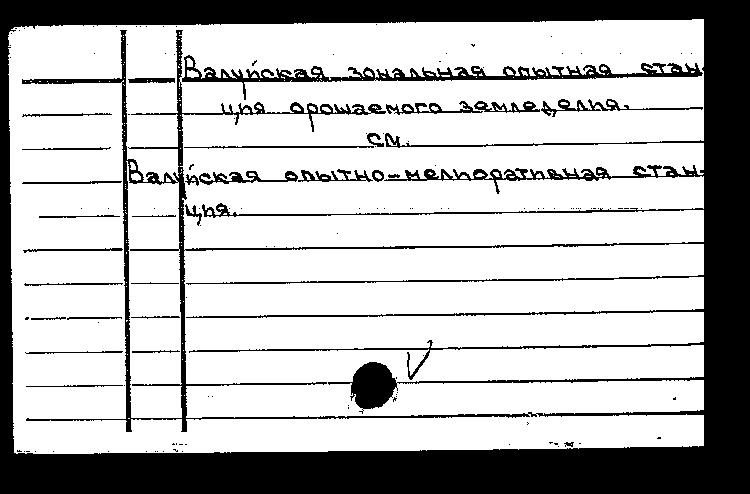 Валуйская зональная опытная стан-
ция орошаемого земледелия.
см.
Валуйская опытно-мелиоративная стан-
ция.